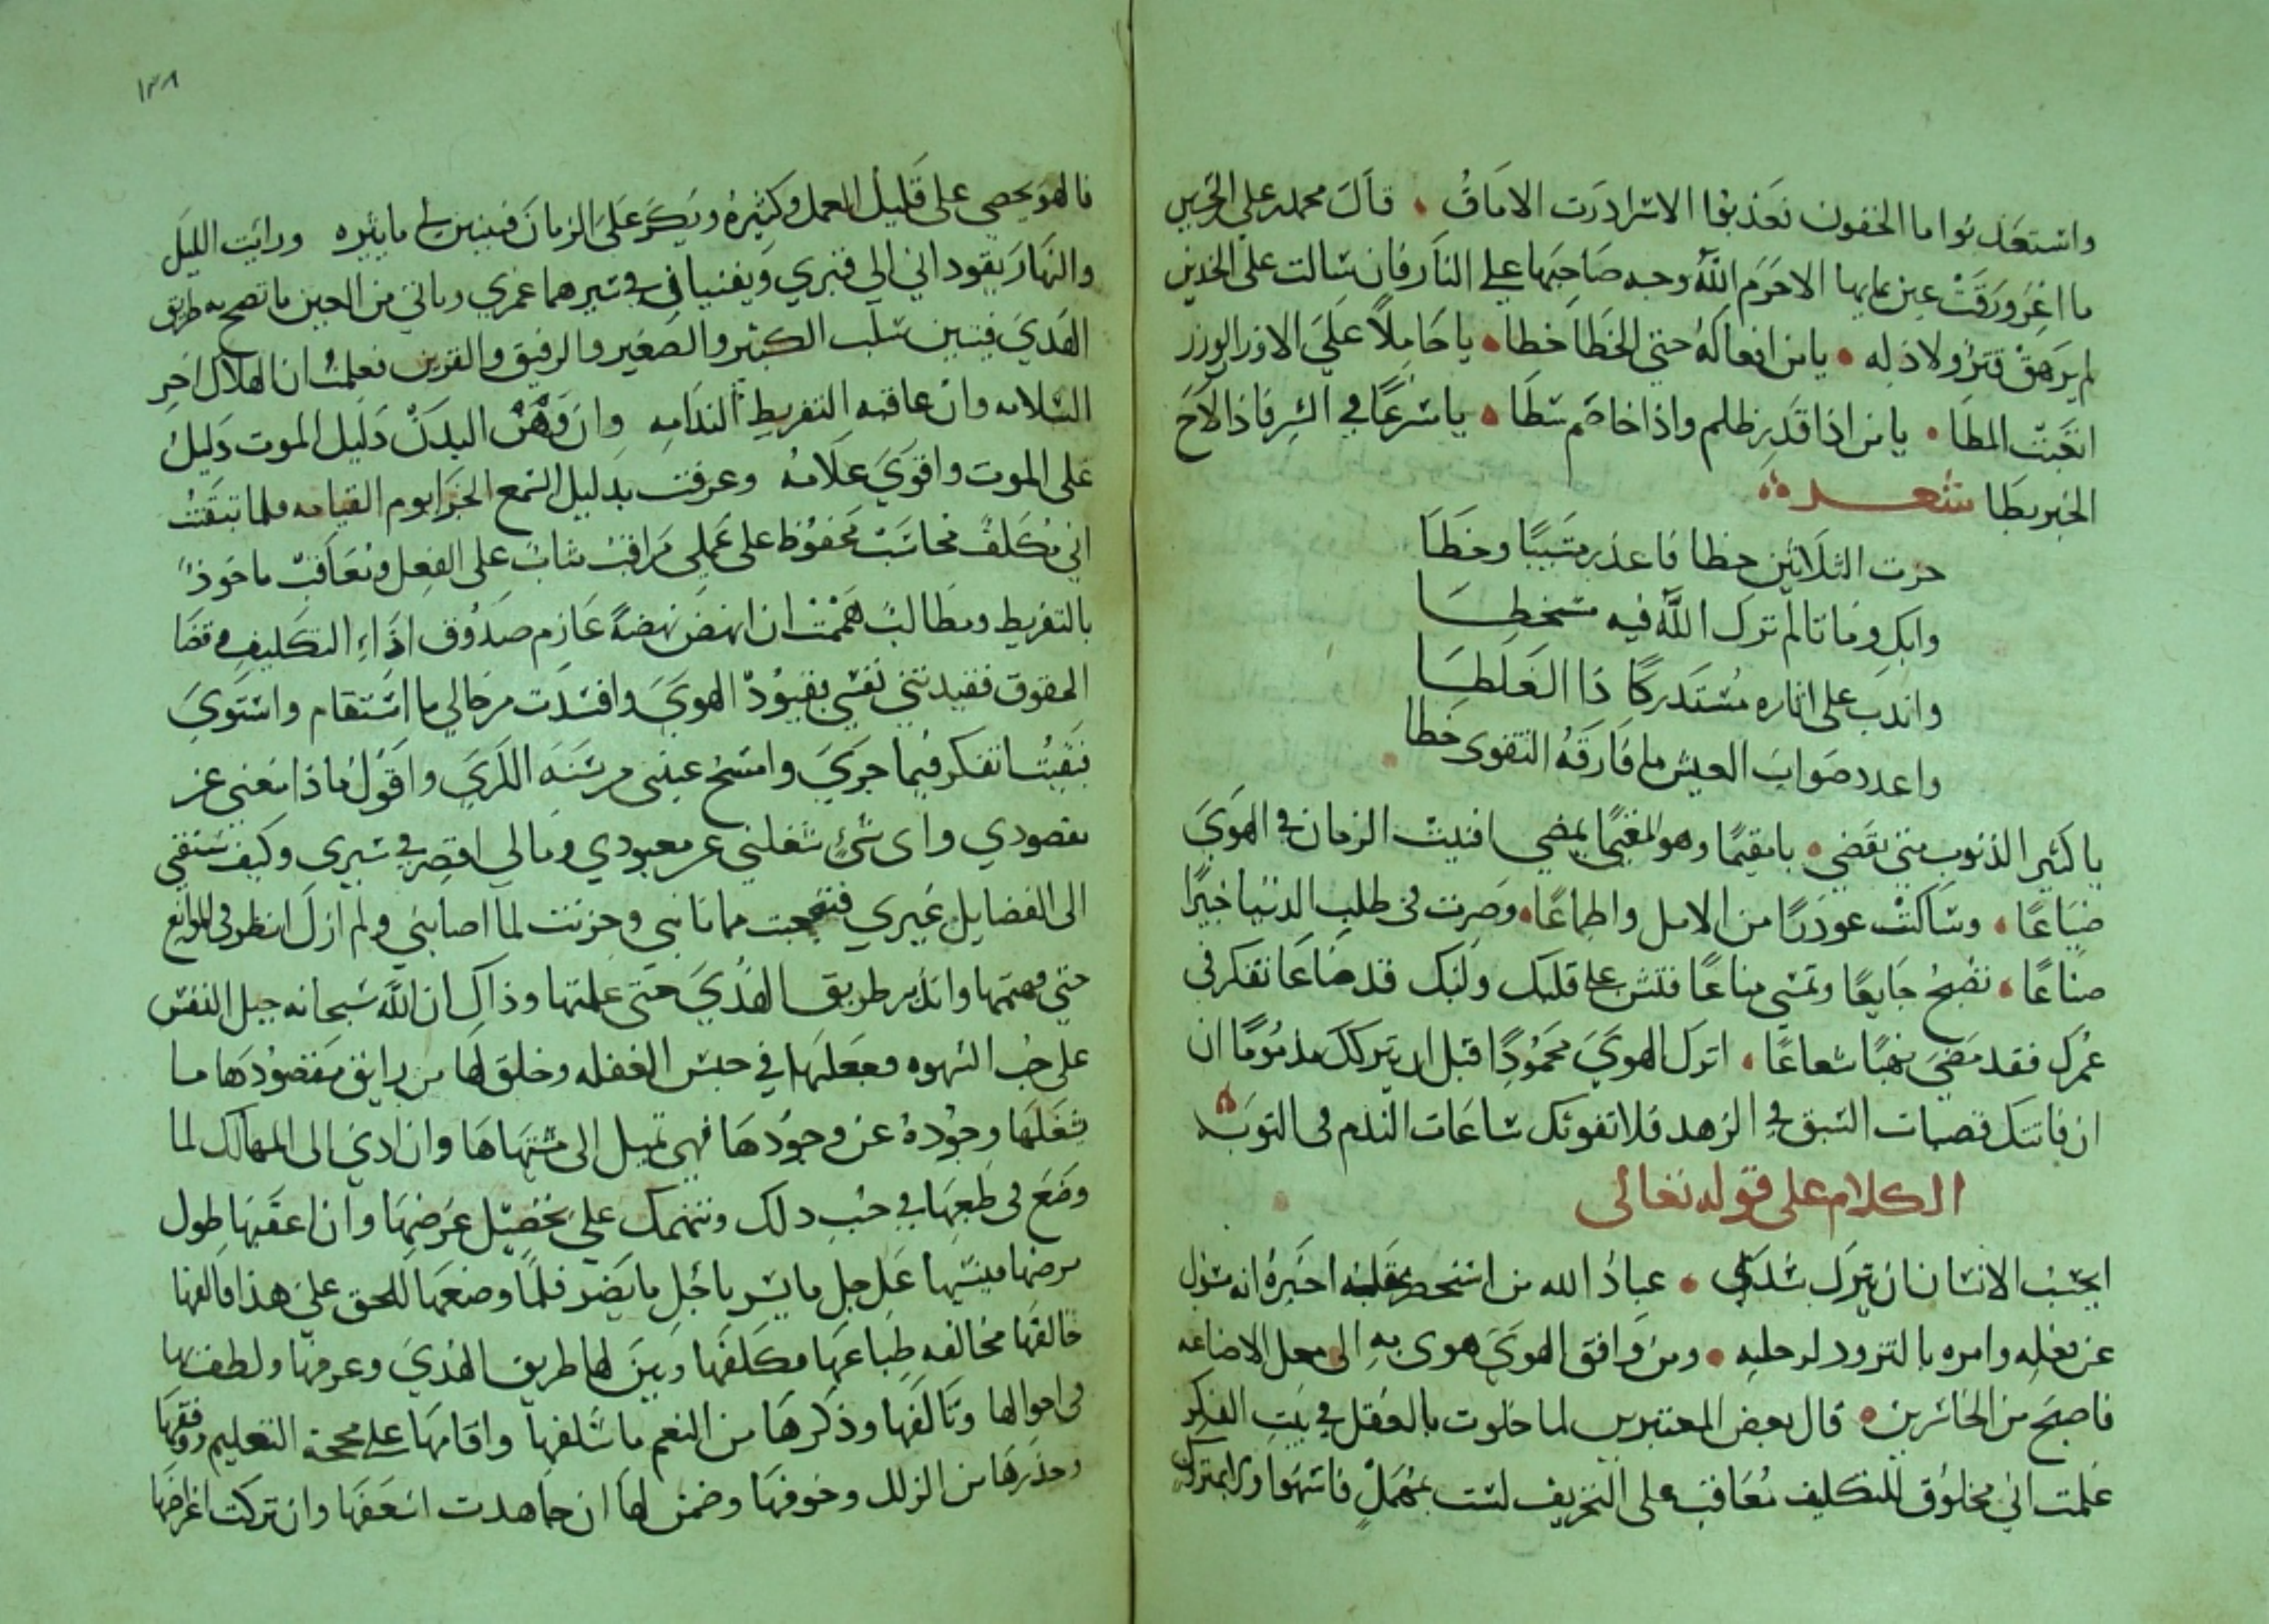 واستعذبوا ما الخفون تعذيبا الاسرادرت الاماق • قال محمد بن علي
ما اغرورقت عين بمايها الا حرم الله وجه صاحبها على النار فان سالت على الخدين
لم يرهق قتر ولا ذله • يا من افعاله حتى الخطا خطا • يا حاملا على الازر الوزر
اتعبت المطا • يا من اذا قدر ظلم واذا خاصم سطا • يا سرعا في الشر فاذا لاح
الخير بطا شعر
حزت الثلاثين خطا فاعذر مشيبا وخطا
وابك زمانا لم تزل الله فيه مسخطا
واندب على اثاره مستدركا ذا الغلطا
واعدد صواب العيش ما فارقه التقوى خطا
يا كثير الذنوب متى تقضي • يا مقيما وهو المقيما يمضي افنيت الزمان في الهوى
ضياعا • وساكنت غرورا من الامل واطماعا • وصرت في طلب الدنيا خبيرا
صناعا • تصبح جايعا وتمسي مناعا فتش على قلبك ولبك قد ضاعا تفكر في
عمرك فقد مضى نهبا شعاعا • اترك الهوى محمودا قبل ان يتركك مذموما ان
ان فاتتك قصبات السبق في الزهد فلا تفوتك ساعات الندم في التوبه
الكلام على قوله تعالى
ايحسب الانسان ان يترك سدى • عباد الله من استحضر عقله اخبره انه مسول
عن فعله وامره بالتزود لرحليه • ومن وافق الهوى هوى به الى محل الاضاعه
فاصبح من الخاسرين • قال بعض المعتبرين لما خلوت بالعقل في بيت الفكر
علمت اني مخلوق للتكليف معاقب على التخريف لست بمهمل فاسهوا ولا بمتروك
١٣٨
فالهو يحصي على قليل العمل وكثيره ويكر على الزمان فيبين لي ما يثيره ورايت الليل
والنهار يقوداني الى قبري ويفنيان في سيرهما عمري وياتي من الحين ما تصح به طريق
الهدى فيبين سلب الكبير والصغير والرفيق والقرين فعلمت ان الهلاك اخر
السلامه وان عاقبه التفريط الندامه وان وهن البدن دليل الموت دليل
على الموت واقوى علامه وعرفت بدليل السمع الجزا يوم القيامه فلما تيقنت
اني مكلف محاسب محفوظ على عملي مراقب مثاب على الفعل ومعاقب ماخوذ
بالتفريط ومطالب هممت ان انهض نهضة عازم صدوق اذاء التكليف وقضا
الحقوق فقيدتني نفسي بقيود الهوى وافسدت من حالي ما استقام واستوى
فبقيت اتفكر فيما جرى وامسح عيني من سنه الكرى واقول ماذا منعني عن
مقصودي واي شيء شغلني عن معبودي ومالي اقصر في سيري وكيف سبقني
الى الفضايل غيري فتعجبت مما نابني وحزنت لما اصابني ولم ازل انظر في الموانع
حتى فهمتها واتدبر طريق الهدى حتى علمتها وذاك ان الله سبحانه جبل النفس
على حب الشهوه وجعلها في حبس الغفله وخلق لها من رايق مقصودها ما
شغلها وجوده عن وجودها فهي تميل الى مشتهاها وان ادى الى المهالك لما
وضع في طبعها في حب ذلك وتنهمك على تحصيل غرضها وان اعقبها طول
مرضها فينسيها عاجل ما يسر باجل ما يضر فلما وضعها الحق على هذا فالفها
خالفها مخالفه طباعها مكلفها وبين لها طريق الهدى وعرفها ولطف بها
في احوالها وتالفها وذكرها من النعم ما سلفها واقامها على محجة التعليم ووقفها
وحذرها من الزلل وخوفها وضمن لها ان جاهدت اسعفها وان تركت اغراضها